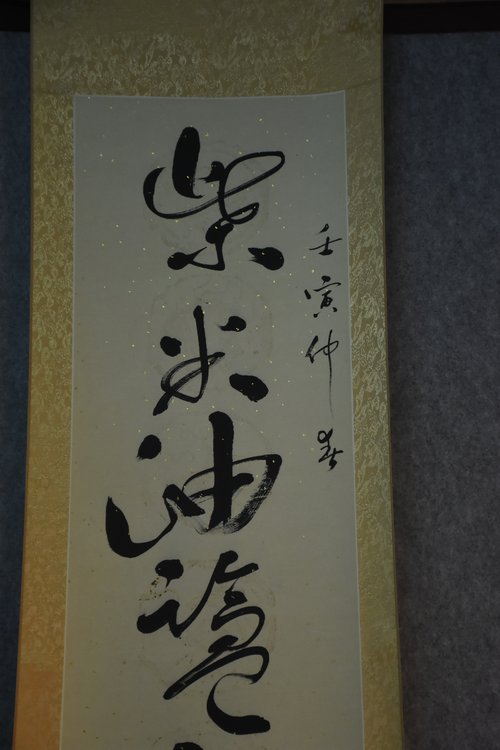 壬寅仲春
柴米油盐